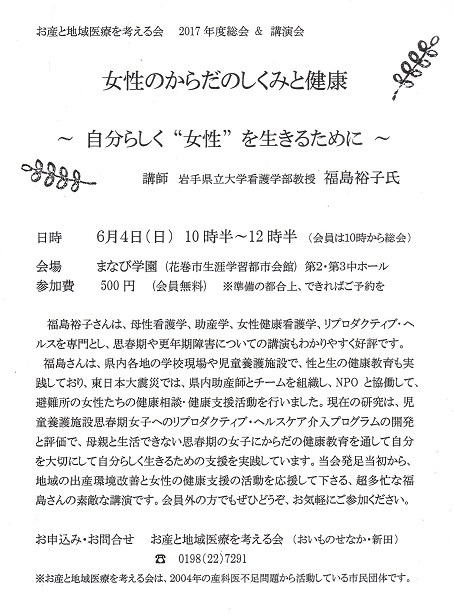 お産と地域医療を考える会　2017年度総会 & 講演会
女性のからだのしくみと健康
～ 自分らしく “女性” を生きるために ～
講師　岩手県立大学看護学部教授　福島裕子氏
日時　6月4日(日) 10時半～12時半　(会員は10時から総会)
会場　まなび学園 (花巻市生涯学習都市会館) 第2・第3中ホール
参加費　500円　(会員無料)　※準備の都合上、できればご予約を
福島裕子さんは、母性看護学、助産学、女性健康看護学、リプロダクティブ・ヘ
ルスを専門とし、思春期や更年期障害についての講演もわかりやすく好評です。
福島さんは、県内各地の学校現場や児童養護施設で、性と生の健康教育も実
践しており、東日本大震災では、県内助産師とチームを組織し、NPOと協働して、
避難所の女性たちの健康相談・健康支援活動を行いました。現在の研究は、児
童養護施設思春期女子へのリプロダクティブ・ヘルスケア介入プログラムの開発
と評価で、母親と生活できない思春期の女子にからだの健康教育を通して自分
を大切にして自分らしく生きるための支援を実践しています。当会発足当初から、
地域の出産環境改善と女性の健康支援の活動を応援して下さる、超多忙な福
島さんの素敵な講演です。会員外の方でもぜひどうぞ、お気軽にご参加ください。
お申込み・お問合せ　お産と地域医療を考える会　(おいものせなか・新田)
☎ 0198(22)7291
※お産と地域医療を考える会は、2004年の産科医不足問題から活動している市民団体です。